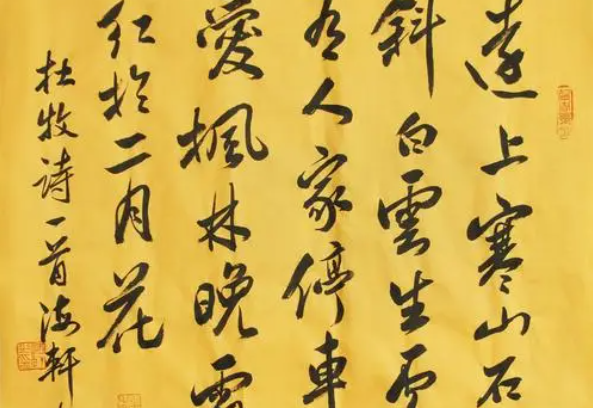 遠上寒山石
斜白雲生處
有人家停車
愛楓林晚
紅於二月花
杜牧詩一首海軒